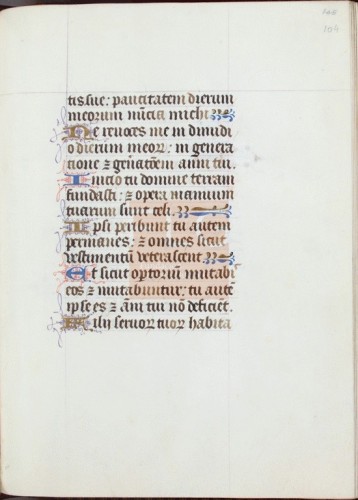 104
tis sue: paucitatem dierum
meorum nūcia michi
Ne reuoces me in dimidi
o dierum meoꝝ: in genera
tione ⁊ gn̄atōem anni tui.
Inicio tu domine terram
fundasti: ⁊ opera manuum
tuarum sunt celi.
Ipsi peribunt tu autem
permanes: ⁊ omnes sicut
vestimentū veterascent
Et sicut optoriū mutabi
eos ⁊ mutabuntur: tu autē
ipse es ⁊ anī tui nō deficiēt.
Filii seruoꝝ tuoꝝ habita